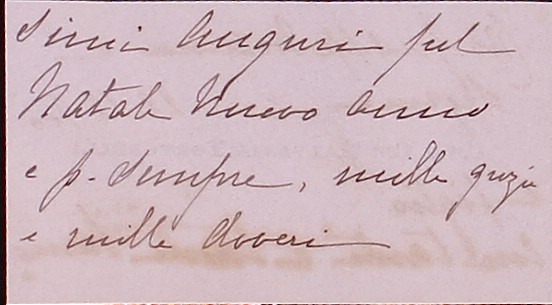 simi Auguri pel
Natale Nuovo anno
e p. sempre, mille grazie
e mille doveri